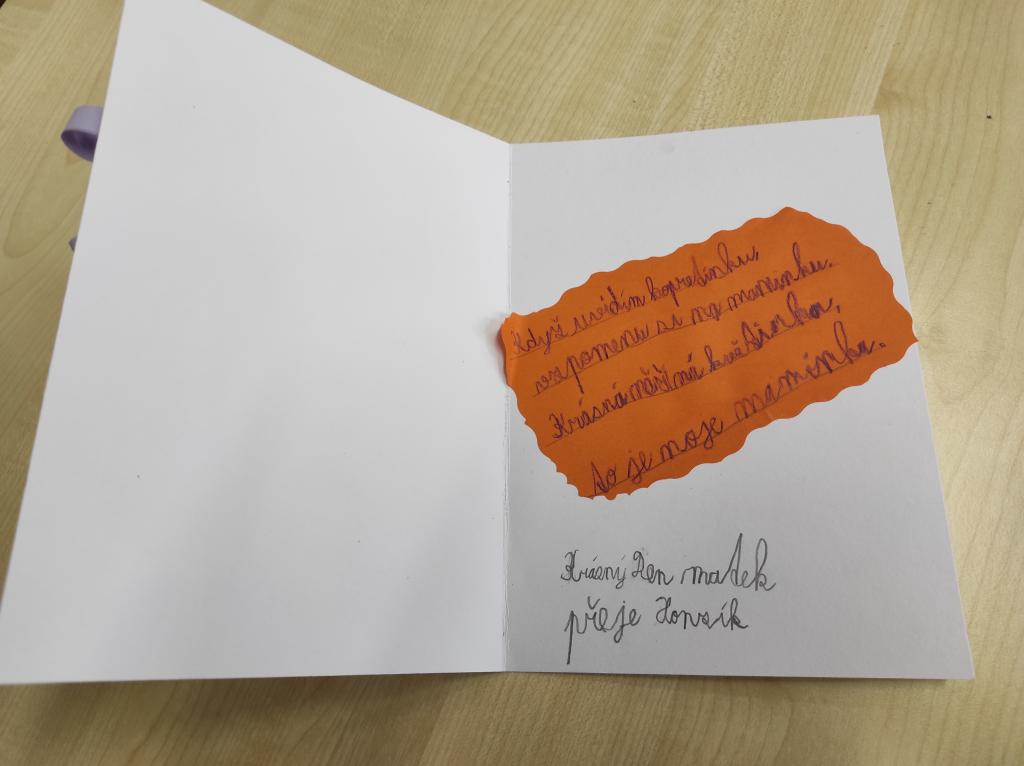 Když uvidím kopretinku,
vzpomenu si na maminku.
Krásná něžná květinka,
to je moje maminka.
Krásný Den matek
přeje Honzík